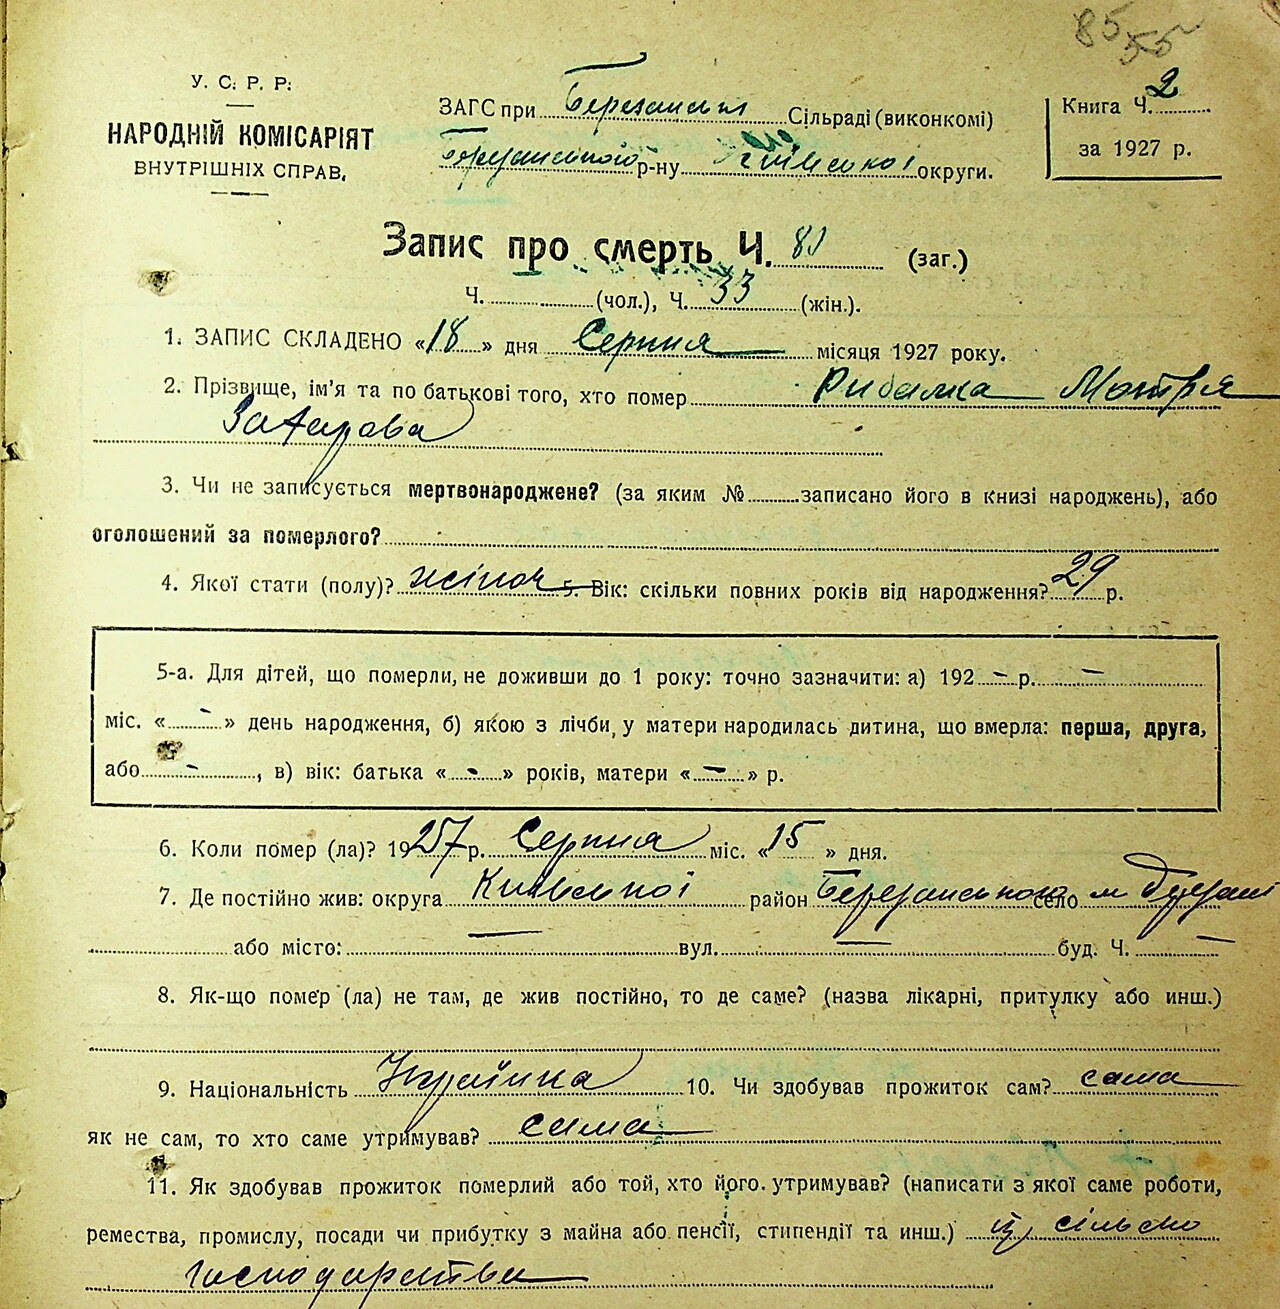 85 55
У. С. Р. Р.
НАРОДНІЙ КОМІСАРІЯТ
ВНУТРІШНІХ СПРАВ.
ЗАГС при Березанськ Сільраді (виконкомі)
Березанського р-ну Київської округи.
Книга Ч. 2
за 1927 р.
Запис про смерть Ч. 81 (заг.)
Ч. (чол.), Ч. 33 (жін.).
1. ЗАПИС СКЛАДЕНО «18» дня Серпня місяця 1927 року.
2. Прізвище, ім'я та по батькові того, хто помер Рибалка Мотря
Захарова
3. Чи не записується мертвонароджене? (за яким № записано його в книзі народжень), або
оголошений за померлого?
4. Якої стати (полу)? жіноч 5. Вік: скільки повних років від народження? 29 р.
5-а. Для дітей, що померли, не доживши до 1 року: точно зазначити: а) 192 – р. –
міс. « – » день народження, б) якою з лічби, у матери народилась дитина, що вмерла: перша, друга,
або –, в) вік: батька « – » років, матери « – » р.
6. Коли помер (ла)? 1927 р. Серпня міс. «15» дня.
7. Де постійно жив: округа Київської район Березанського село м Березані
або місто: — вул. — буд. Ч. —
8. Як-що помер (ла) не там, де жив постійно, то де саме? (назва лікарні, притулку або инш.)
9. Національність Українка 10. Чи здобував прожиток сам? сама
як не сам, то хто саме утримував? сама
11. Як здобував прожиток померлий або той, хто його утримував? (написати з якої саме роботи,
ремества, промислу, посади чи прибутку з майна або пенсії, стипендії та инш.) із сільсько
господарства